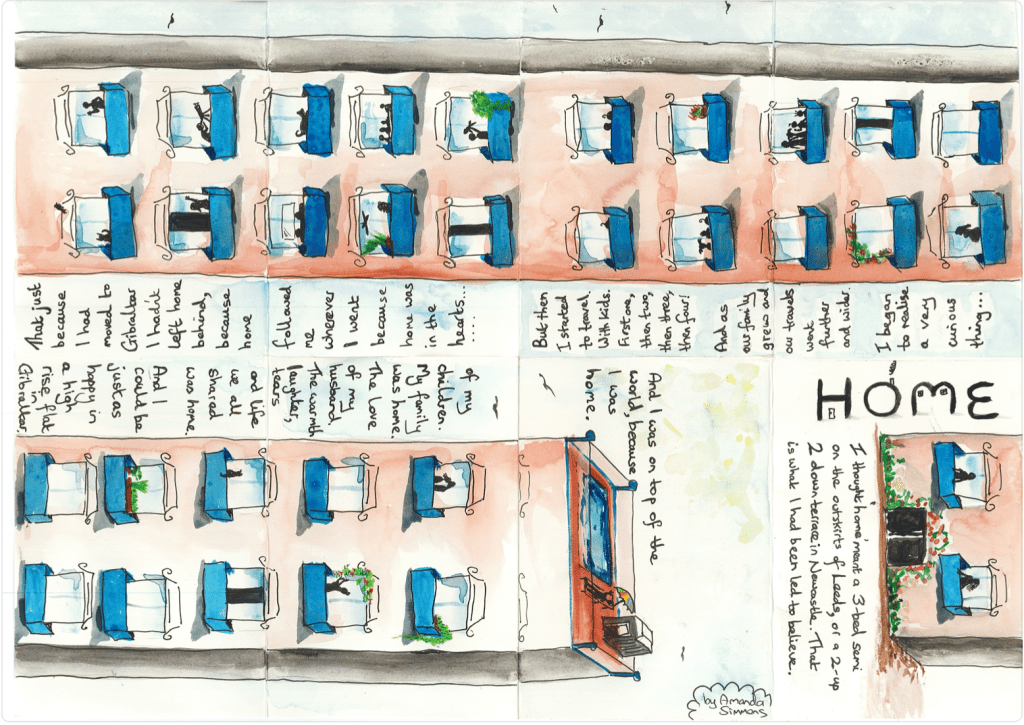 HOME
I thought 'home' meant a 3-bed semi
on the outskirts of Leeds, or a 2-up
2 down terrace in Newcastle. That
is what I had been led to believe.
But then
I started
to travel.
With kids.
First one,
then two,
then three,
then four!
And as
our family
grew and
our travels
went
further
and wilder.
I began
to realise
a very
curious
thing...
That just
because
I had
moved to
Gibaltar
I hadn't
left home
behind,
because
home
followed
me
wherever
I went
because
home was
in the
hearts...
....
of my
children.
My family
was home.
The love
of my
husband,
The warmth
laughter,
tears
and life
we all
shared
was home.
And I
could be
just as
happy in
a high
rise flat
in
Gibraltar.
And I was on top of the
world, because
I was
home..
by Amanda
Simmons